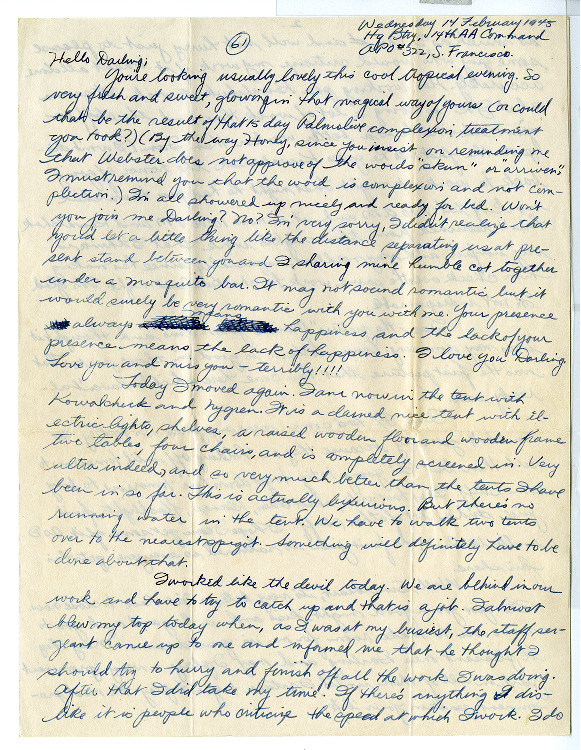 Wednesday 14 February 1945
Hq Btry, 14th AA Command
61
APO #322, S. Francisco.
Hello Darling;
You're looking usually lovely this cool tropical evening. So
very fresh and sweet, glowing in that magical way of yours (or could
that be the result of that 15 day Palmolive complexion treatment
you took?) (By the way Honey, since you insist on reminding me
that Webster does not approve of the words "skun" or arriven,
I must remind you that the word is complexion and not com-
plection.) I'm all showered up nicely and ready for bed. Won't
you join me Darling? No? I'm very sorry, I didn't realize that
you'd let a little thing like the distance separating us at pre-
sent stand between you and I sharing mine humble cot together
under a mosquito bar. It may not sound romantic but it
would surely be very romantic with you with me. Your presence
always means happiness and the lack of your
presence means the lack of happiness. I love you Darling.
Love you and miss you - terribly!!!!
Today I moved again. I am now in the tent with
Kowalchuk and Nygren. It is a darned nice tent with el-
ectric lights, shelves, a raised wooden floor and wooden frame
two tables, four chairs, and is completely screened in. Very
ultra indeed, and so very much better than the tents I have
been in so far. This is actually luxurious. But there's no
running water in the tent. We have to walk two tents
over to the nearest spigot. Something will definitely have to be
done about that.
I worked like the devil today. We are behind in our
work and have to try to catch up and that is a job. I almost
blew my top today when, as I was at my busiest, the staff ser-
geant came up to me and informed me that he thought I
should try to hurry and finish off all the work I was doing.
After that I did take my time. If there's anything I dis-
like it is people who criticize the speed at which I work. I do